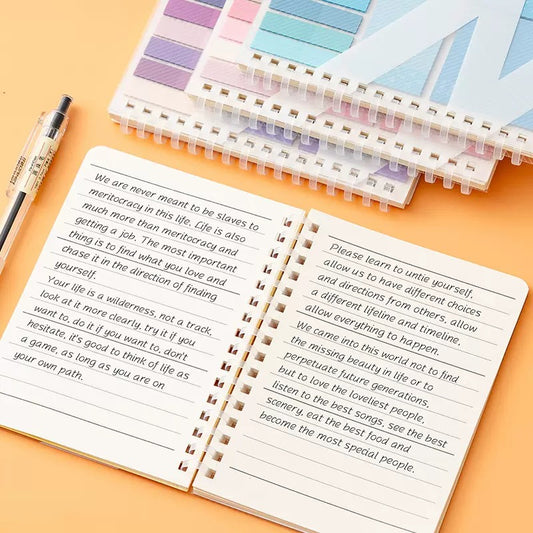 We are never meant to be slaves to
meritocracy in this life. Life is also
much more than meritocracy and
getting a job. The most important
thing is to find what you love and
chase it in the direction of finding
yourself.
Your life is a wilderness, not a track,
look at it more clearly, try it if you
want to, do it if you want to, don't
hesitate, it's good to think of life as
a game, as long as you are on
your own path.
Please learn to untie yourself,
allow us to have different choices
and directions from others, allow
a different lifeline and timeline,
allow everything to happen.
We came into this world not to find
the missing beauty in life or to
perpetuate future generations,
but to love the loveliest people,
listen to the best songs, see the best
scenery, eat the best food and
become the most special people.